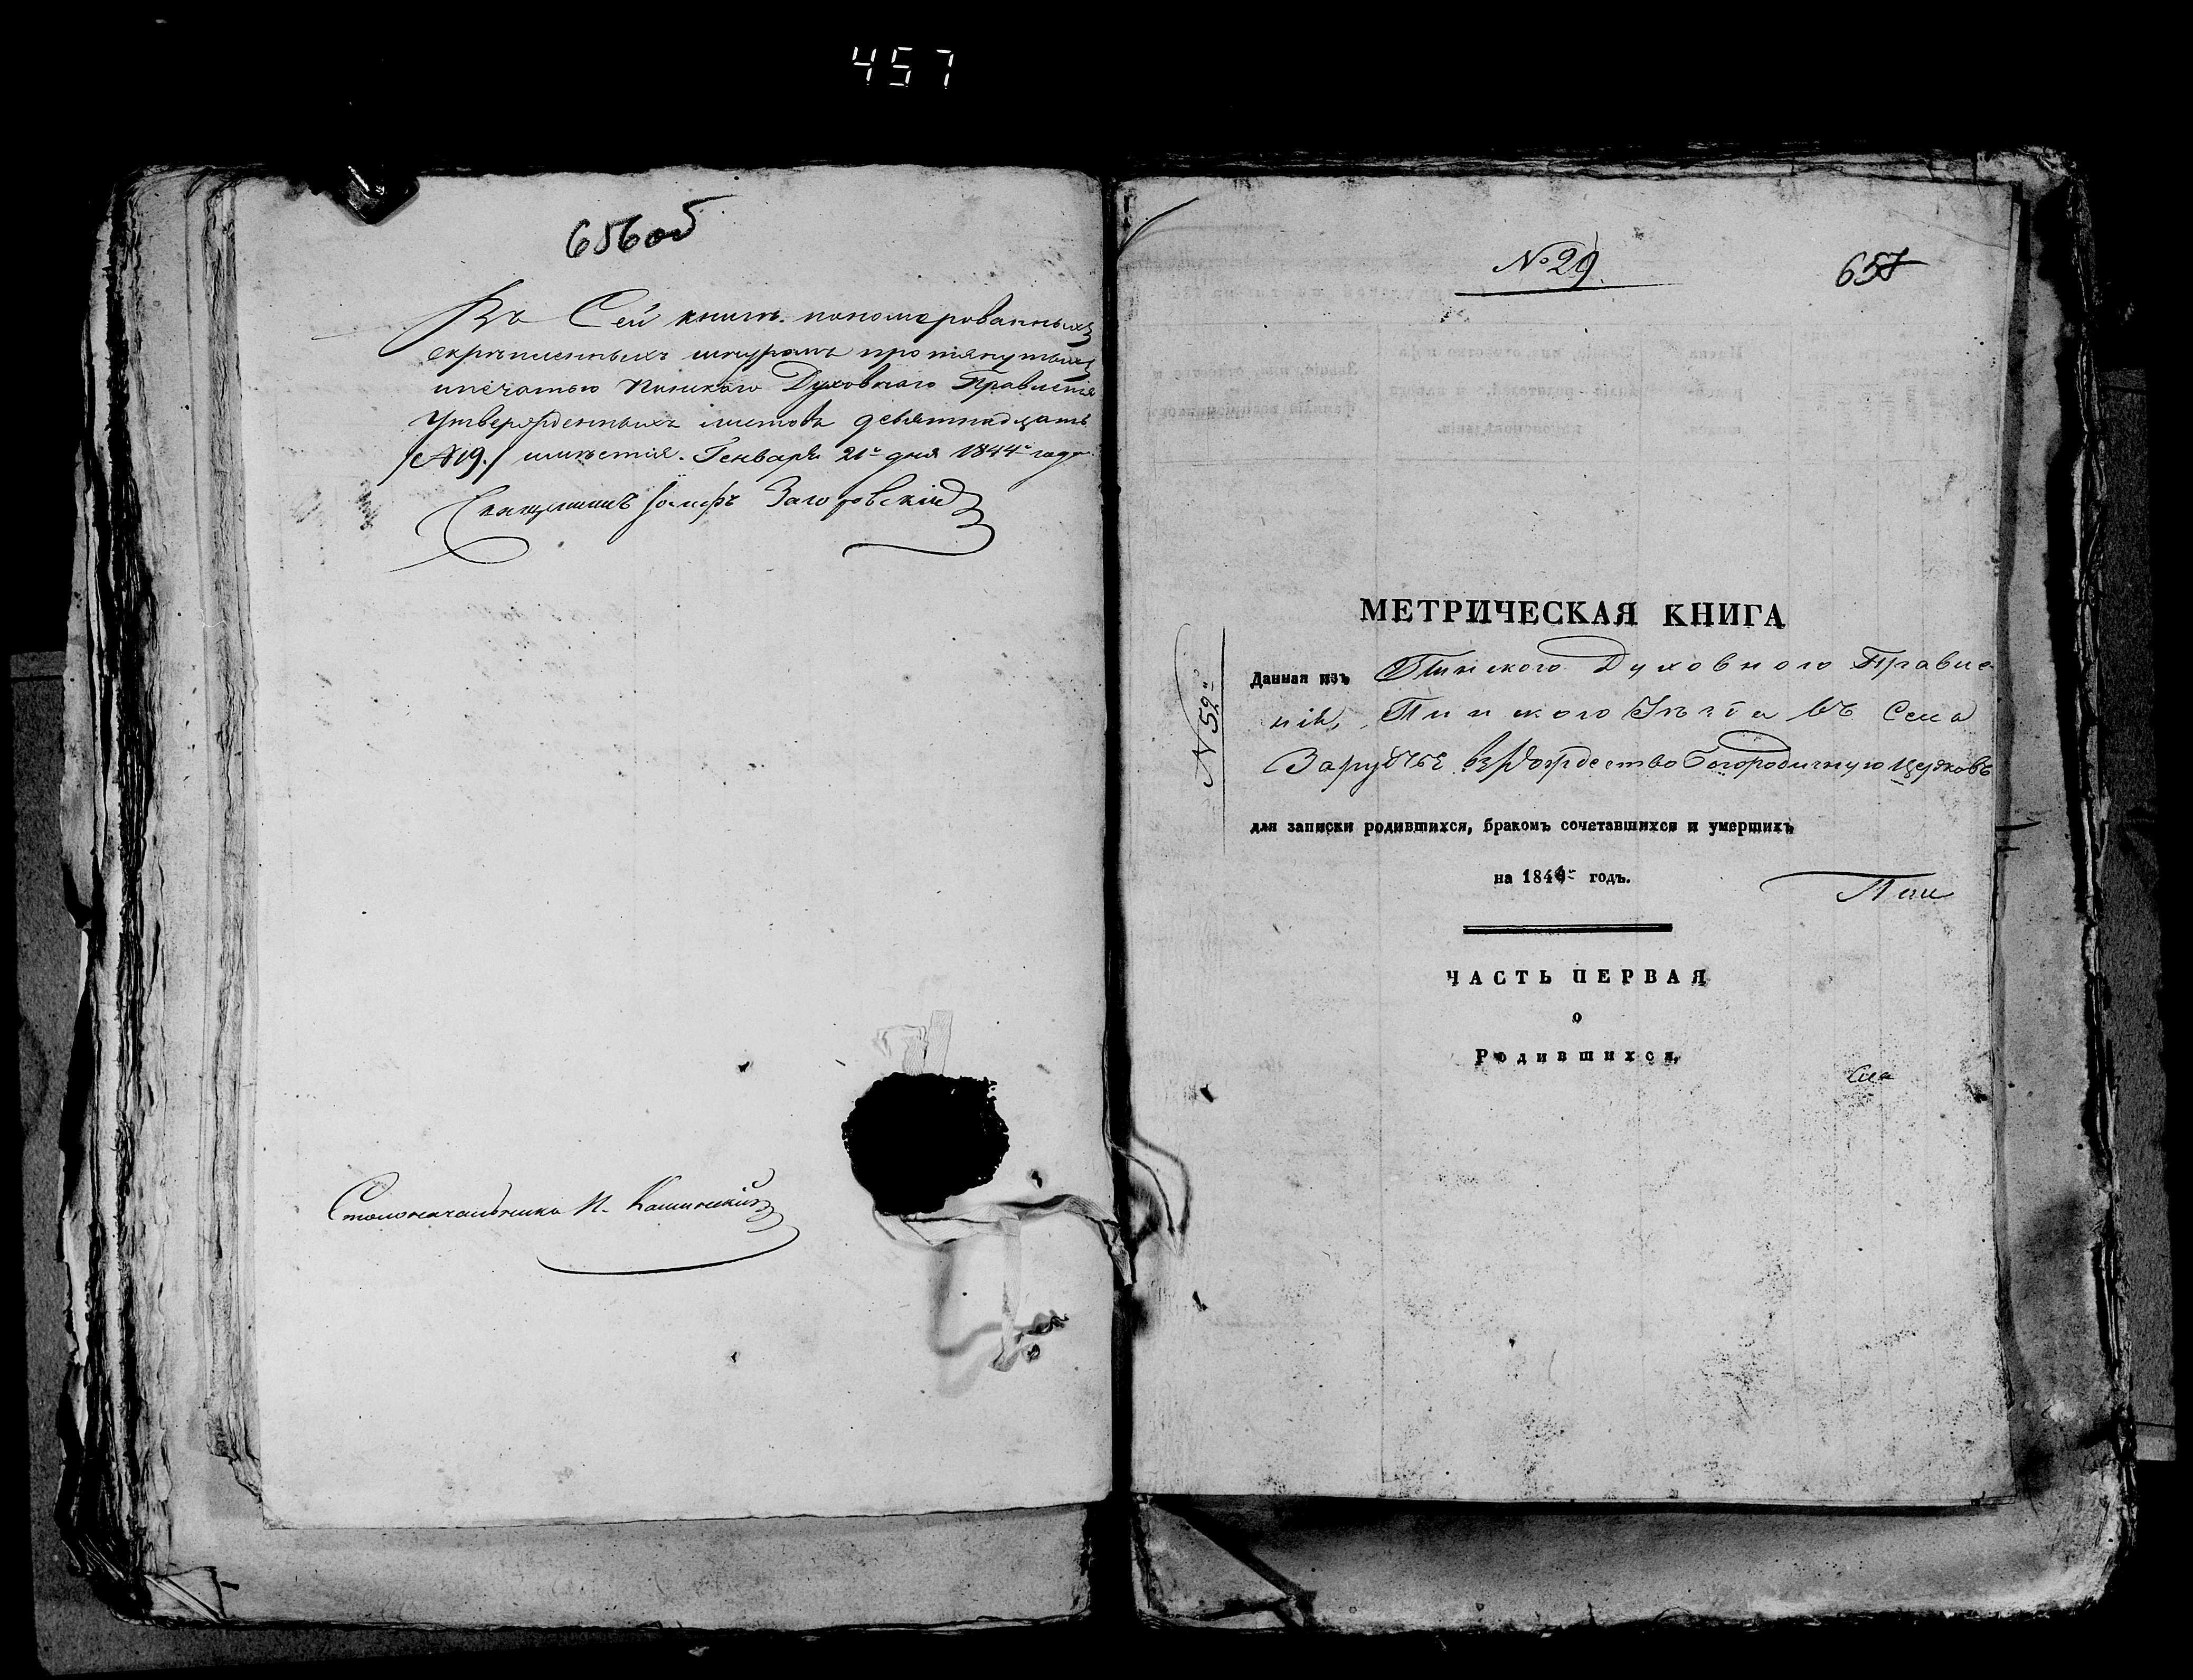 457
656об
Въ Сей книгѣ пономерованныхъ
скрѣпленныхъ шнуромъ протянутыхъ
и печатью Пинского Духовнаго Правленія
утвержденныхъ листовъ девятнадцать
/№ 19./ имѣется. Генваря 21го дня 1844го года
Священникъ Іосифъ Загоровскій
Столоначальникъ И.
№ 29.
657
№ 52й
МЕТРИЧЕСКАЯ КНИГА
Данная изъ Пинского Духовного Правле-
нія, Пинского Уѣзда въ Село
Зарѣчье въ Рождество Богородичную церковь
для записки родившихся, бракомъ сочетавшихся и умершихъ
на 1844й годъ.
Пин
ЧАСТЬ ПЕРВАЯ
о
Родившихся,